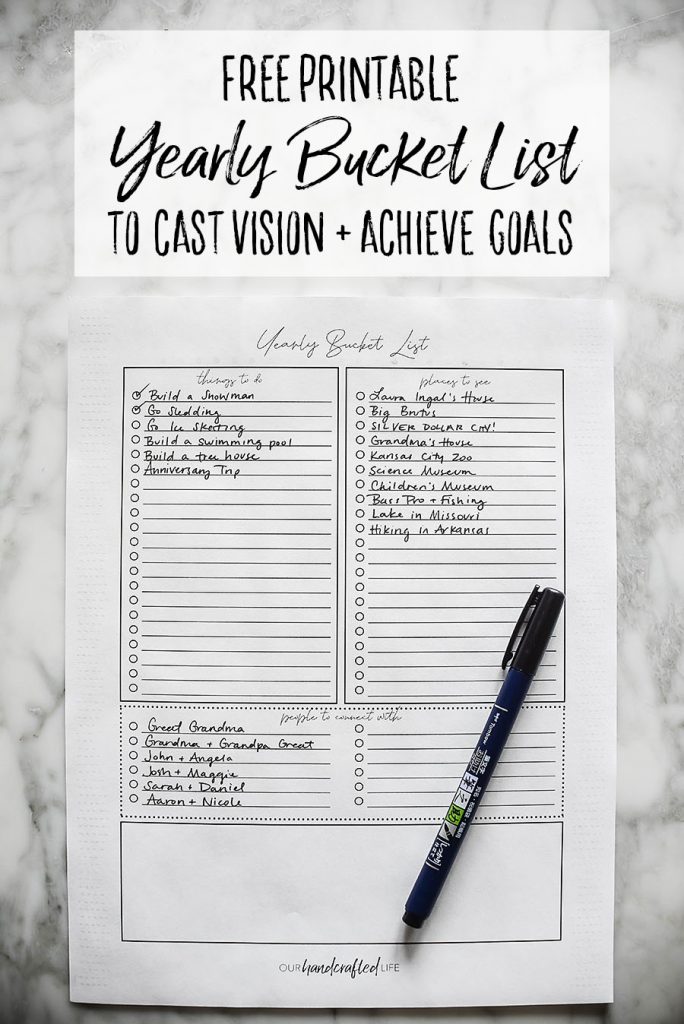 FREE PRINTABLE
Yearly Bucket List
TO CAST VISION + ACHIEVE GOALS
Yearly Bucket List
things to do
Build a Snowman
Go Sledding
Go Ice Skating
Build a swimming pool
Build a tree house
Anniversary Trip
places to see
Laura Ingal's House
Big Brutus
SILVER DOLLAR CITY!
Grandma's House
Kansas City Zoo
Science Museum
Children's Museum
Bass Pro + Fishing
Lake in Missouri
Hiking in Arkansas
people to connect with
Greed Grandma
Grandma + Grandpa Great
John + Angela
Josh + Maggie
Sarah + Daniel
Aaron + Nicole
Tombow
OUR handcrafted LIFE